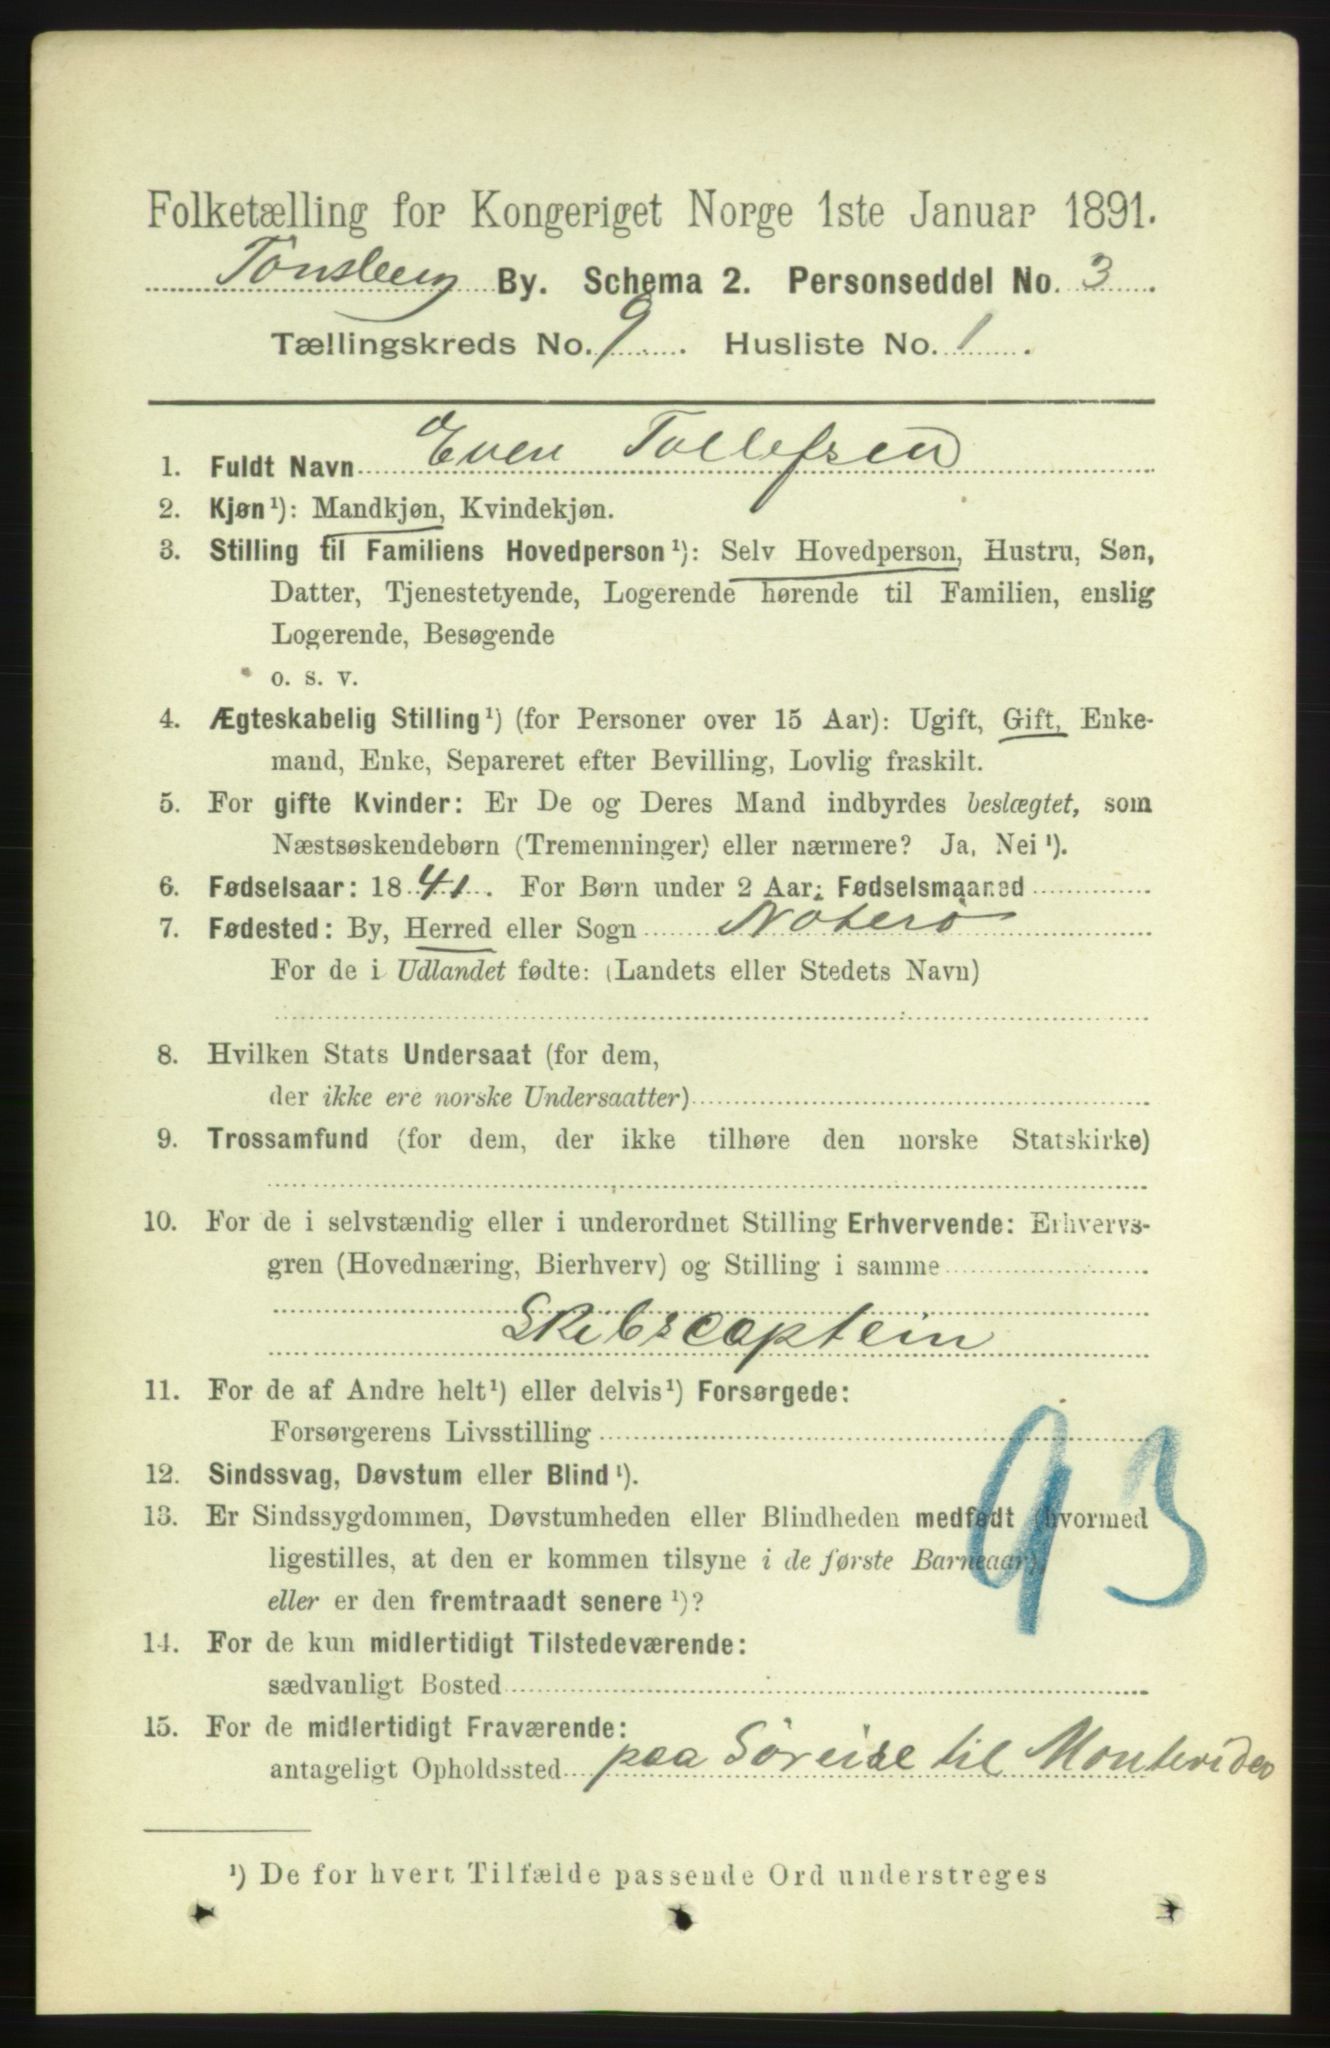 Folketælling for Kongeriget Norge 1ste Januar 1891.
Tönsberg By. Schema 2. Personseddel No. 3.
Tællingskreds No. 9. Husliste No. 1.
1. Fuldt Navn Even Tollefsen
2. Kjøn¹): Mandkjøn, Kvindekjøn.
3. Stilling til Familiens Hovedperson¹): Selv Hovedperson, Hustru, Søn,
Datter, Tjenestetyende, Logerende hørende til Familien, enslig
Logerende, Besøgende
o. s. v.
4. Ægteskabelig Stilling¹) (for Personer over 15 Aar): Ugift, Gift, Enke-
mand, Enke, Separeret efter Bevilling, Lovlig fraskilt.
5. For gifte Kvinder: Er De og Deres Mand indbyrdes beslægtet, som
Næstsøskendebørn (Tremenninger) eller nærmere? Ja, Nei¹).
6. Fødselsaar: 1841. For Børn under 2 Aar: Fødselsmaaned
7. Fødested: By, Herred eller Sogn Nöterö
For de i Udlandet fødte: (Landets eller Stedets Navn)
8. Hvilken Stats Undersaat (for dem,
der ikke ere norske Undersaatter)
9. Trossamfund (for dem, der ikke tilhøre den norske Statskirke)
10. For de i selvstændig eller i underordnet Stilling Erhvervende: Erhvervs-
gren (Hovednæring, Bierhverv) og Stilling i samme
Skibscaptein
11. For de af Andre helt¹) eller delvis¹) Forsørgede:
Forsørgerens Livsstilling
12. Sindssvag, Døvstum eller Blind¹).
13. Er Sindssygdommen, Døvstumheden eller Blindheden medfødt (hvormed
ligestilles, at den er kommen tilsyne i de første Barneaar),
eller er den fremtraadt senere¹)?
93
14. For de kun midlertidigt Tilstedeværende:
sædvanligt Bosted
15. For de midlertidigt Fraværende:
antageligt Opholdssted paa Söreise til Montevideo
¹) De for hvert Tilfælde passende Ord understreges